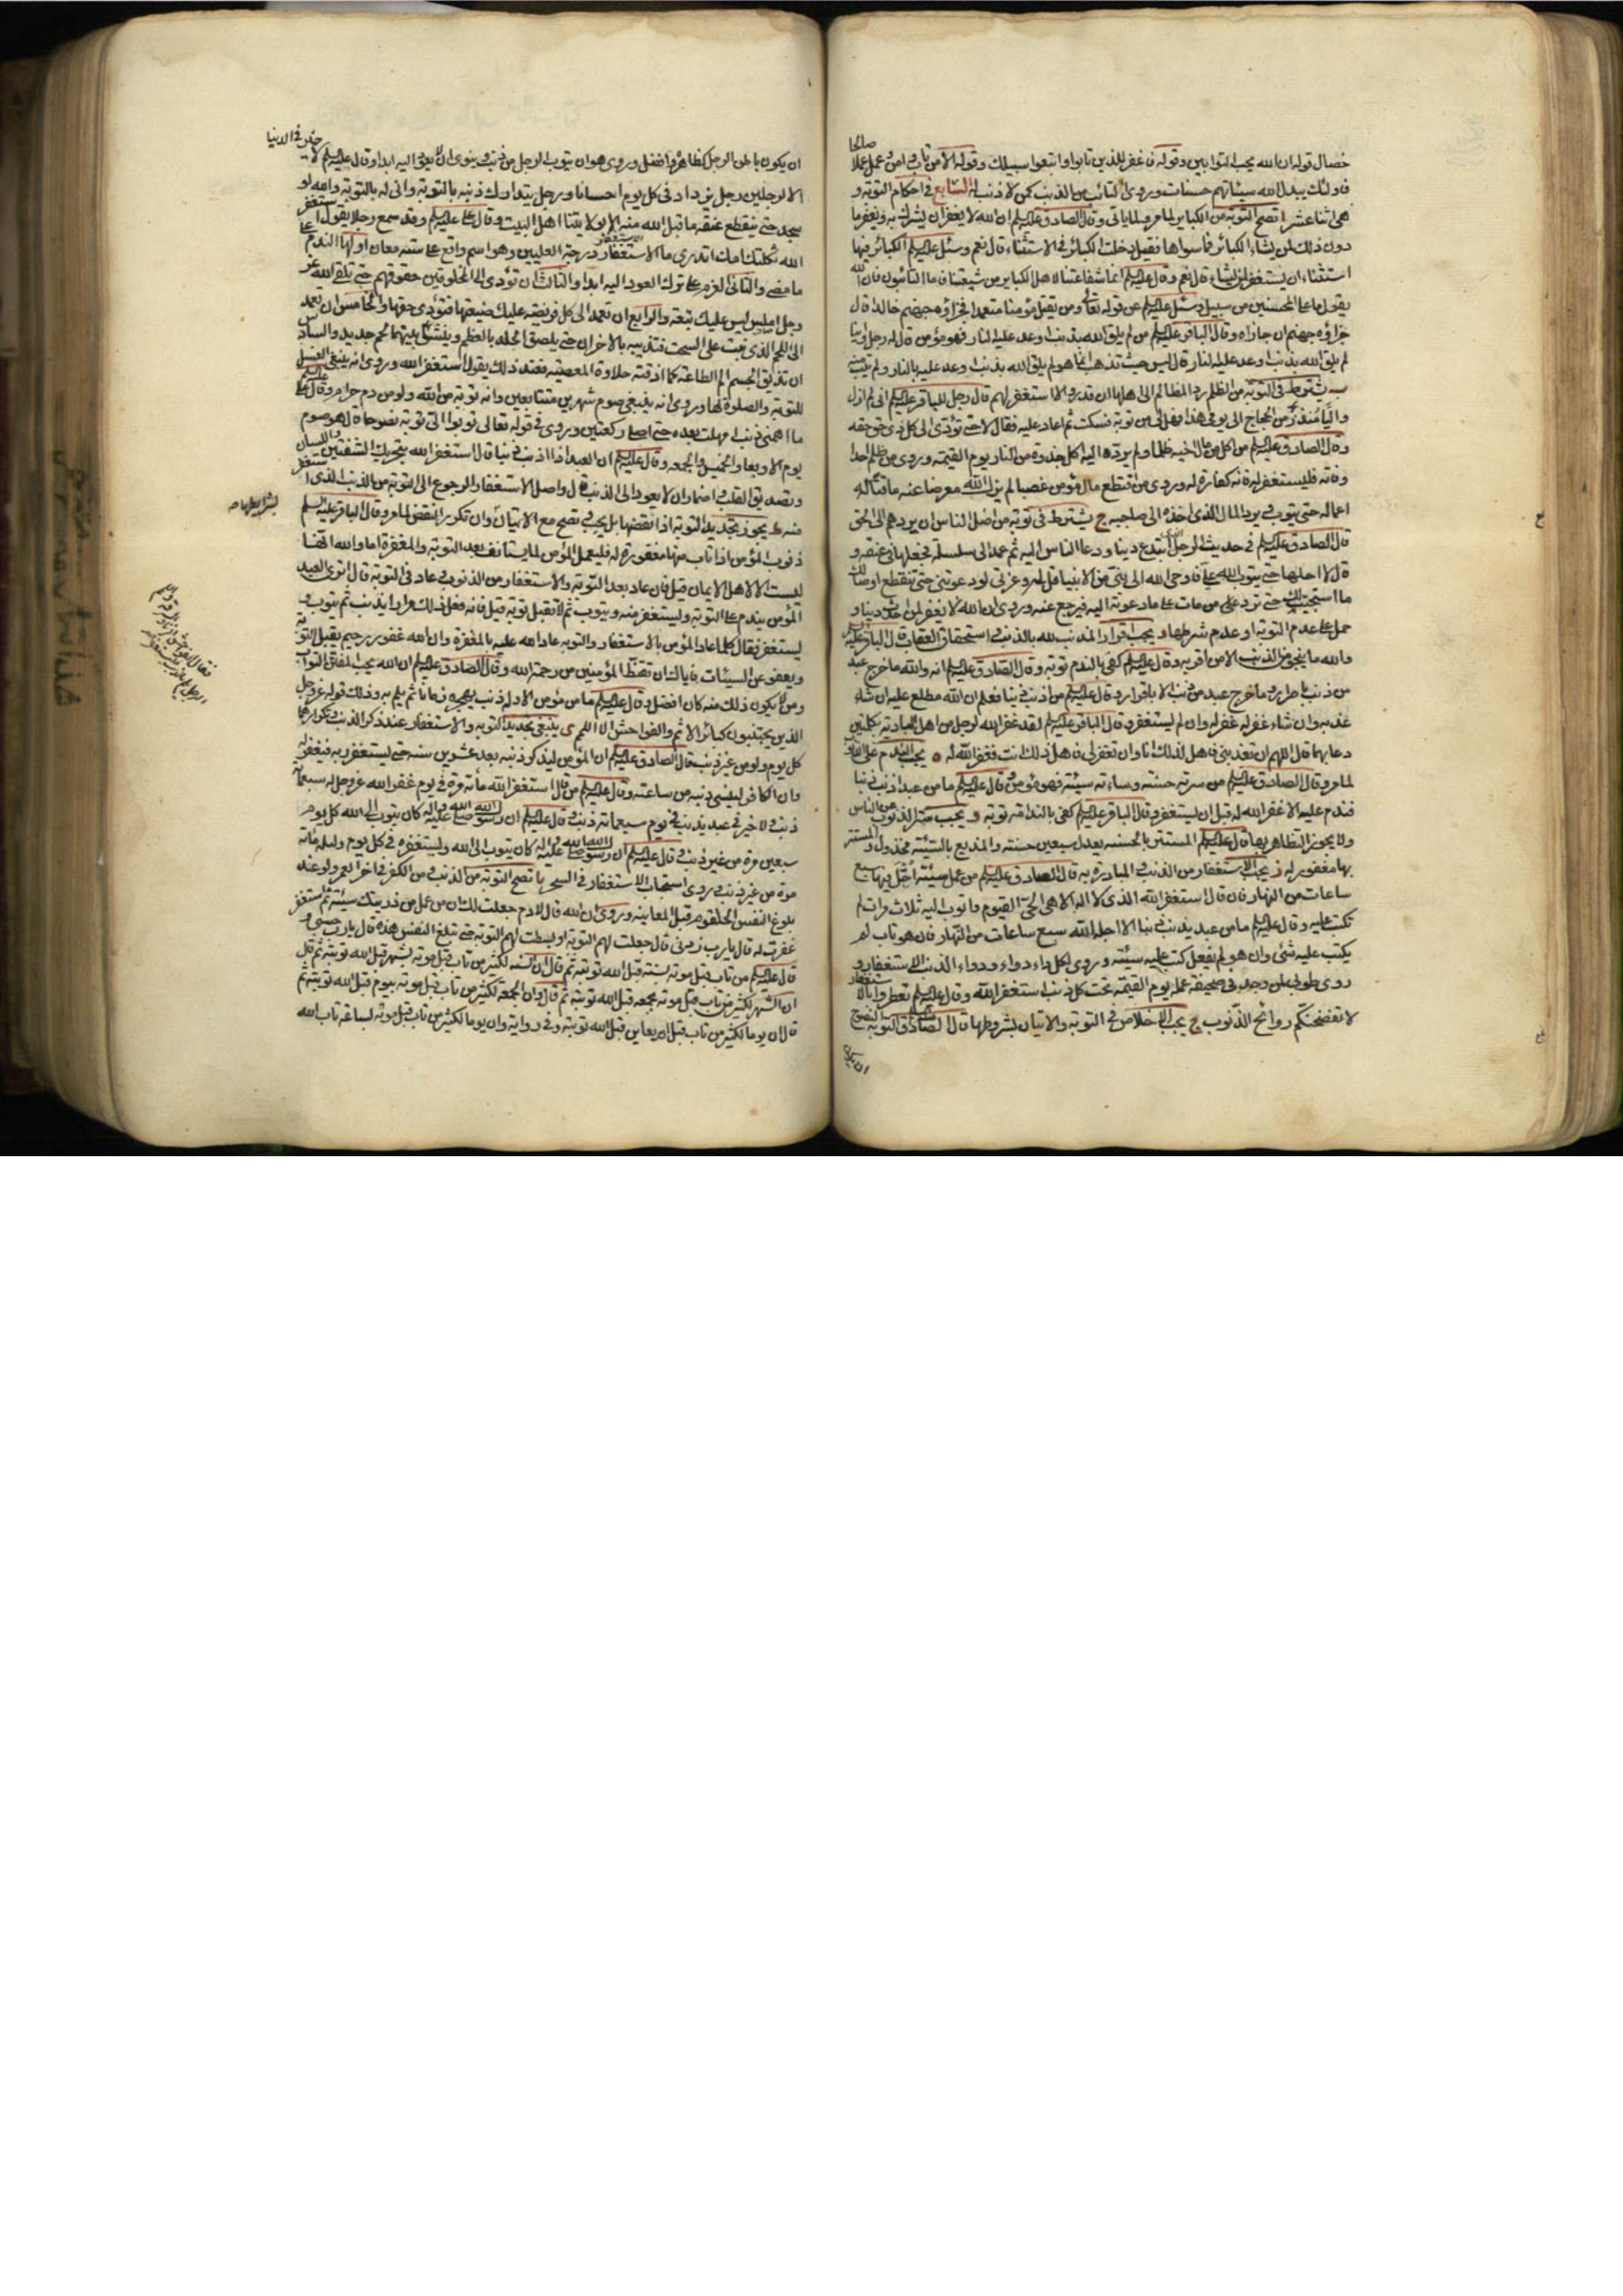 خصال قوله ان الله يحب التوابين وقوله فاغفر للذين تابوا واتبعوا سبيلك وقوله الا من تاب وآمن وعمل عملا صالحا
فاولئك يبدل الله سيئاتهم حسنات وروى التائب من الذنب كمن لا ذنب له السابع في احكام التوبة و
هي اثنا عشر ا تصح التوبة من الكباير لما مر ولما ياتى وقال الصادق عليه السلم ان الله لا يغفر ان يشرك به ويغفر ما
دون ذلك لمن يشاء الكبائر فما سواها فقيل دخلت الكبائر في الاستثناء قال نعم وسئل عليه السلم الكبائر فيها
استثناء ان يستغفر لمن يشاء قال نعم وقال عليه السلم انما شفاعتنا لاهل الكباير من شيعتنا فاما التائبون فان الله
يقول ما على المحسنين من سبيل وسئل عليه السلم عن قوله تعالى ومن يقتل مؤمنا متعمدا فجزاؤه جهنم خالدا قال
جزاؤه جهنم ان جازاه وقال الباقر عليه السلم من لم يلق الله بذنب اوعد عليه النار فهو مؤمن قال له رجل واينا
لم يلق الله بذنب اوعد عليه النار قال ليس حيث تذهب انما هو لم يلق الله بذنب اوعد عليه بالنار ولم يتب منه
ب يشترط في التوبة من الظلم رد المظالم الى اهلها ان قدر والا استغفر لهم قال رجل للباقر عليه السلم انى لم ازل
واليا منذ زمن الحجاج الى يومى هذا فهل لى من توبة فسكت ثم اعاد عليه فقال لا حتى تؤدى الى كل ذى حق حقه
وقال الصادق عليه السلم من اكل من مال اخيه ظلما ولم يرده اليه اكل جذوة من النار يوم القيمة وروى من ظلم احدا
وفاته فليستغفر له فانه كفارة له وروى من اقتطع مال مؤمن غصبا لم يزل الله معرضا عنه ماقتا له
اعماله حتى يتوب ويرد المال الذى اخذه الى صاحبه ج يشترط في توبة من اضل الناس ان يردهم الى الحق
قال الصادق عليه السلم في حديث الرجل ابتدع دينا ودعا الناس اليه ثم عمد الى سلسلة فجعلها في عنقه و
قال لا احلها حتى يتوب الله على فاوحى الله الى نبى من الانبيا قل له وعزتى لو دعوتنى حتى تنقطع اوصالك
ما استجبت لك حتى ترد على من مات على ما دعوته اليه فيرجع عنه وروى ان الله لا يغفر لمن احدث دينا و
حمل على عدم التوبة او عدم شرطها د يجب اقرار المذنب لله بالذنب واستحقاق العقاب قال الباقر عليه السلم
والله ما ينجو من الذنب الا من اقر به وقال عليه السلم كفى بالندم توبة وقال الصادق عليه السلم انه والله ما خرج عبد
من ذنب باصرار وما خرج عبد من ذنب الا باقرار وقال عليه السلم من اذنب ذنبا فعلم ان الله مطلع عليه ان شاء
عذبه وان شاء غفر له غفر له وان لم يستغفر وقال الباقر عليه السلم لقد غفر الله لرجل من اهل البادية بكلمتين
دعا بهما قال اللهم ان تعذبنى فاهل لذلك انا وان تغفر لى فاهل ذلك انت فغفر الله له ه يجب الندم على الذنوب
لما مر وقال الصادق عليه السلم من سرته حسنته وساءته سيئته فهو مؤمن وقال عليه السلم ما من عبد اذنب ذنبا
فندم عليه الا غفر الله له قبل ان يستغفر وقال الباقر عليه السلم كفى بالندامة توبة و يجب ستر الذنوب عن الناس
ولا يجوز التظاهر بها قال عليه السلم المستتر بالحسنة يعدل سبعين حسنة والمذيع بالسيئة مخذول والمستتر
بها مغفور له ز يجب الاستغفار من الذنب والمبادرة به قال الصادق عليه السلم من عمل سيئة اجل فيها سبع
ساعات من النهار فان قال استغفر الله الذى لا اله الا هو الحى القيوم واتوب اليه ثلاث مرات لم
تكتب عليه وقال عليه السلم ما من عبد يذنب ذنبا الا اجله الله سبع ساعات من النهار فان هو تاب لم
يكتب عليه شئ وان هو لم يفعل كتب عليه سيئة وروى لكل داء دواء ودواء الذنب الاستغفار و
روى طوبى لمن وجد في صحيفة عمله يوم القيمة تحت كل ذنب استغفر الله وقال عليه السلم تعطروا بالاستغفار
لا تفضحنكم روائح الذنوب ح يجب الاخلاص في التوبة والاتيان بشروطها قال الصادق عليه السلم التوبة النصوح
ان يكون
ان يكون باطن الرجل كظاهره وافضل وروى هو ان يتوب الرجل من ذنب وينوى ان لا يعود اليه ابدا وقال عليه السلم لا خير في الدنيا
الا لرجلين رجل يزداد في كل يوم احسانا ورجل يتدارك ذنبه بالتوبة وانى له بالتوبة والله لو
سجد حتى ينقطع عنقه ما قبل الله منه الا بولايتنا اهل البيت وقال على عليه السلم وقد سمع رجلا يقول استغفر
الله ثكلتك امك اتدرى ما الاستغفار الاستغفار درجة العليين وهو اسم واقع على ستة معان اولها الندم على
ما مضى والثانى العزم على ترك العود اليه ابدا والثالث ان تؤدى الى المخلوقين حقوقهم حتى تلقى الله عز
وجل املس ليس عليك تبعة والرابع ان تعمد الى كل فريضة عليك ضيعتها فتؤدى حقها والخامس ان تعمد
الى اللحم الذى نبت على السحت فتذيبه بالاحزان حتى يلصق الجلد بالعظم وينشأ بينهما لحم جديد والسادس
ان تذيق الجسم الم الطاعة كما اذقته حلاوة المعصية فعند ذلك يقول استغفر الله وروى انه ينبغى الغسل
للتوبة والصلوة لها وروى انه ينبغى صوم شهرين متتابعين وانه توبة من الله ولو من دم حرام وقال على عليه السلم
ما اهمنى ذنب امهلت بعده حتى اصلى ركعتين وروى في قوله تعالى توبوا الى توبة نصوحا قال هو صوم
يوم الاربعا والخميس والجمعة وقال عليه السلم ان العبد اذا اذنب ذنبا قال استغفر الله بتحريك الشفتين واللسان
وتصديق القلب واضمار ان لا يعود الى الذنب قال واصل الاستغفار الرجوع الى التوبة من الذنب الذى استغفر
منه ط يجوز تجديد التوبة اذا نقضها بل يجب وتصح مع الاتيان بشرايطها وان تكرر النقض لما مر وقال الباقر عليه السلم
ذنوب المؤمن اذا تاب منها مغفورة له فليعمل المؤمن لما يستانف بعد التوبة والمغفرة اما والله انها
ليست الا لاهل الايمان قيل فان عاد بعد التوبة والاستغفار من الذنوب وعاد في التوبة قال اترى العبد
المؤمن يندم على التوبة ويستغفر منه ويتوب ثم لا تقبل توبته قيل فانه فعل ذلك مرارا يذنب ثم يتوب و
يستغفر فقال كلما عاد المؤمن بالاستغفار والتوبة عاد الله عليه بالمغفرة وان الله غفور رحيم يقبل التوبة
ويعفو عن السيئات فاياك ان تقنط المؤمنين من رحمة الله وقال الصادق عليه السلم ان الله يحب المفتن التواب
ومن لا يكون ذلك منه كان افضل وقال عليه السلم ما من مؤمن الا وله ذنب يهجره زمانا ثم يلم به وذلك قوله عز وجل
الذين يجتنبون كبائر الاثم والفواحش الا اللمم ى ينبغى تجديد التوبة والاستغفار عند ذكر الذنب وتكرارها
كل يوم ولو من غير ذنب قال الصادق عليه السلم ان المؤمن ليذكر ذنبه بعد عشرين سنة حتى يستغفر ربه فيغفر له
وان الكافر لينسى ذنبه من ساعته وقال عليه السلم من قال استغفر الله مأة مرة في يوم غفر الله عز وجل له سبعمأة
ذنب ولا خير في عبد يذنب في يوم سبعمائة ذنب وقال عليه السلم ان رسول الله صلى الله عليه واله كان يتوب الى الله كل يوم
سبعين مرة من غير ذنب وقال عليه السلم ان رسول الله صلى الله عليه واله كان يتوب الى الله ويستغفره في كل يوم وليلة مائة
مرة من غير ذنب وروى استحباب الاستغفار في السحر يا تصح التوبة من الذنب ومن الكفر في اخر العمر ولو عند
بلوغ النفس الحلقوم قبل المعاينة وروى ان الله قال لادم جعلت لك ان من عمل من ذريتك سيئة ثم استغفر
غفرت له قال يارب زدنى قال جعلت لهم التوبة او بسطت لهم التوبة حتى تبلغ النفس هذه قال يارب حسبى و
قال عليه السلم من تاب قبل موته بسنة قبل الله توبته ثم قال ان السنة لكثير من تاب قبل موته بشهر قبل الله توبته ثم قال
ان الشهر لكثير من تاب قبل موته بجمعة قبل الله توبته ثم قال وان الجمعة لكثير من تاب قبل موته بيوم قبل الله توبته ثم
قال ان يوما لكثير من تاب قبل ان يعاين قبل الله توبته وفي رواية وان يوما لكثير من تاب قبل موته بساعة تاب الله